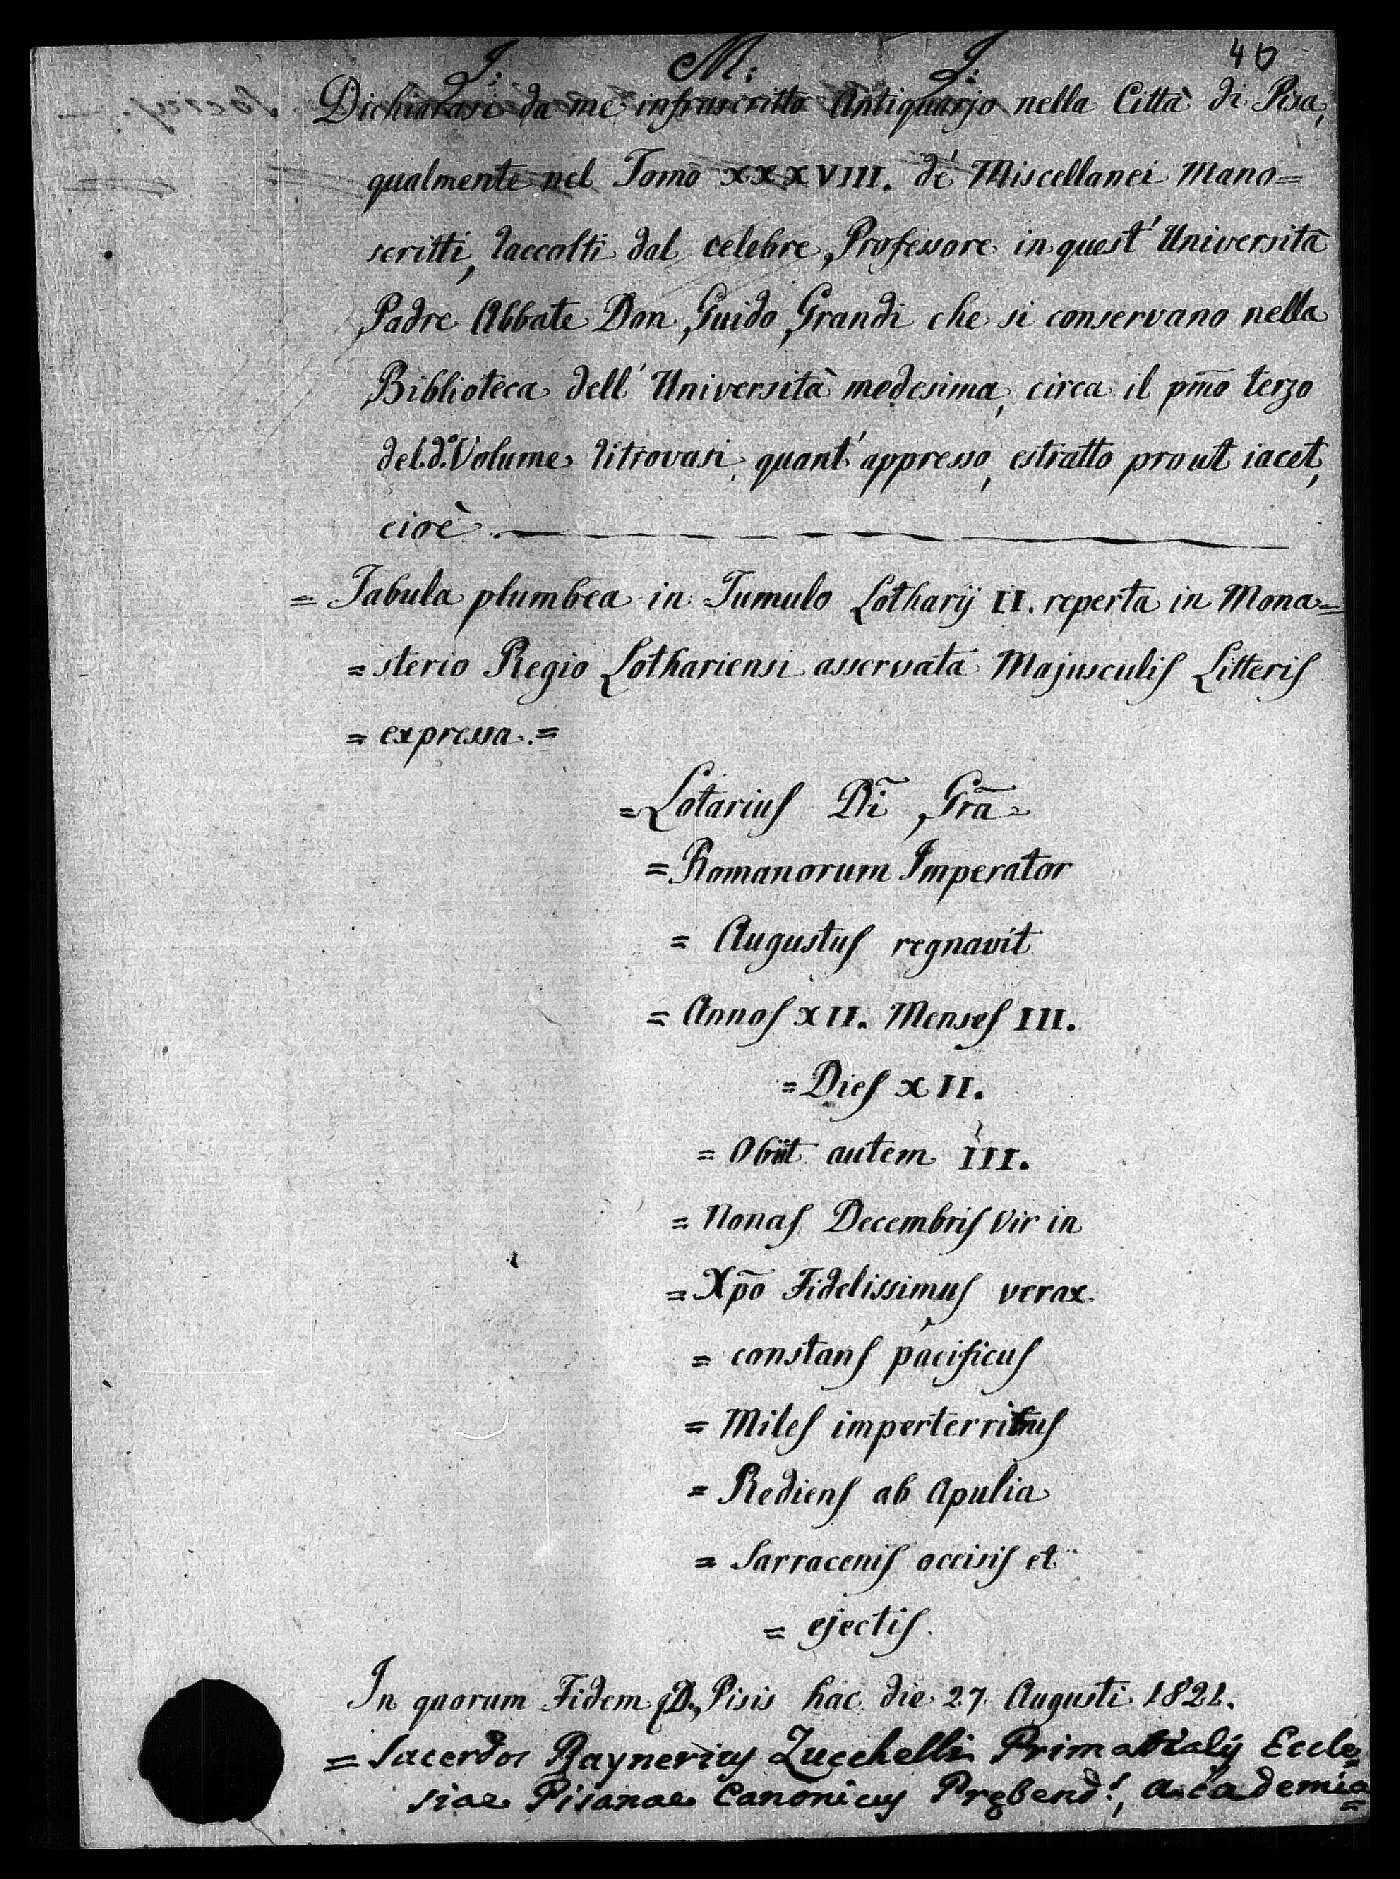 40
J: M: J:
Dichiarasi da me infrascritto Antiquarjo nella Città di Pisa,
qualmente nel Tomo XXXVIII. dé Miscellanei Mano=
scritti, raccolti dal celebre Professore in quest' Università
Padre Abbate Don Guido Grandi che si conservano nella
Biblioteca dell' Università medesima, circa il pm̃o terzo
del d.º Volume ritrovasi quant' appresso, estratto prout iacet,
cioè.
= Tabula plumbea in Tumulo Lotharij II. reperta in Mona=
= sterio Regio Lothariensi asservata Majusculis Litteris
= expressa. =
= Lotarius Dĩ Grã
= Romanorum Imperator
= Augustus regnavit
= Annos XII. Menses III.
= Dies XII.
= Obiit autem III.
= Nonas Decembris Vir in
= Xp̃o Fidelissimus verax
= constans pacificus
= Miles imperterritus
= Rediens ab Apulia
= Sarracenis occisis et
= ejectis.
In quorum Fidem Pisis hac die 27 Augusti 1821.
= Sacerdos Raynerius Zucchelli Primatialij Eccle=
siae Pisanae Canonicus Prębend:, Academia=